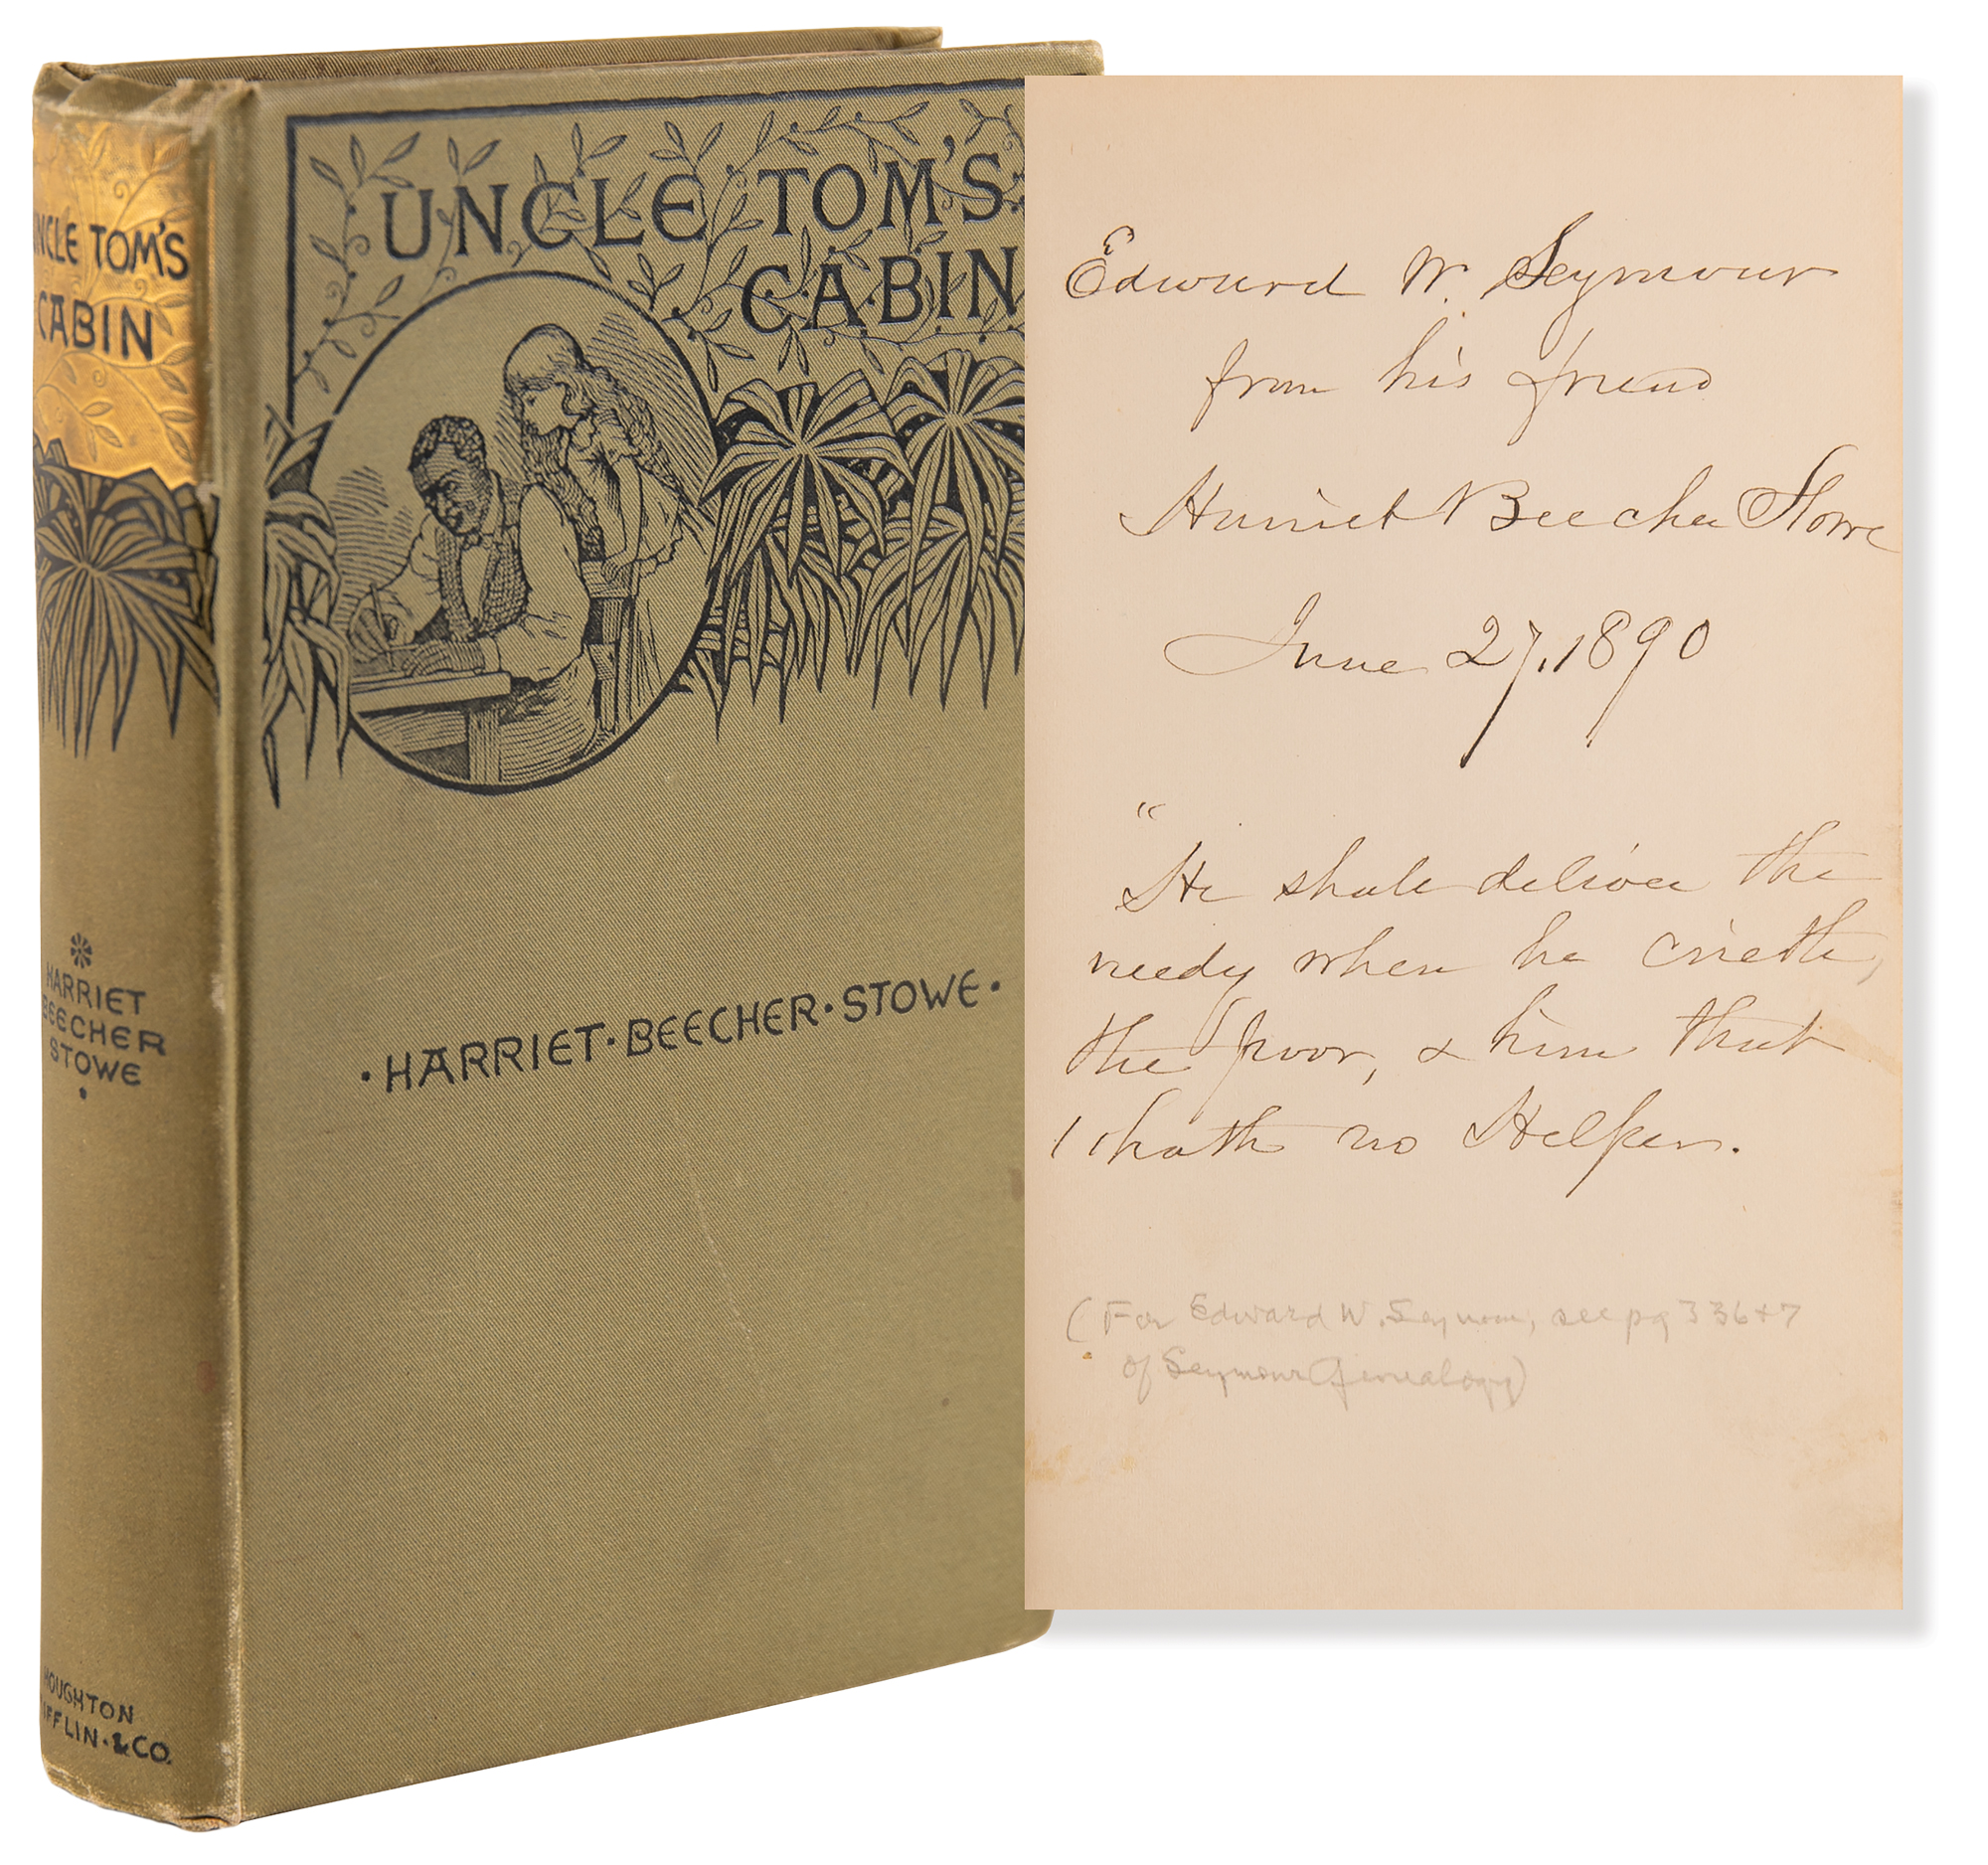 UNCLE TOM'S
CABIN
HARRIET
BEECHER
STOWE
HOUGHTON
MIFFLIN·&CO.
UNCLE·TOM'S·
CABIN
·HARRIET·BEECHER·STOWE·
Edward W. Seymour
from his friend
Harriet Beecher Stowe
June 27, 1890
"
He shall deliver the
needy when he crieth,
the poor, & him that
hath no Helper.
(For Edward W. Seymour, see pg 336+7
of Seymour Genealogy)